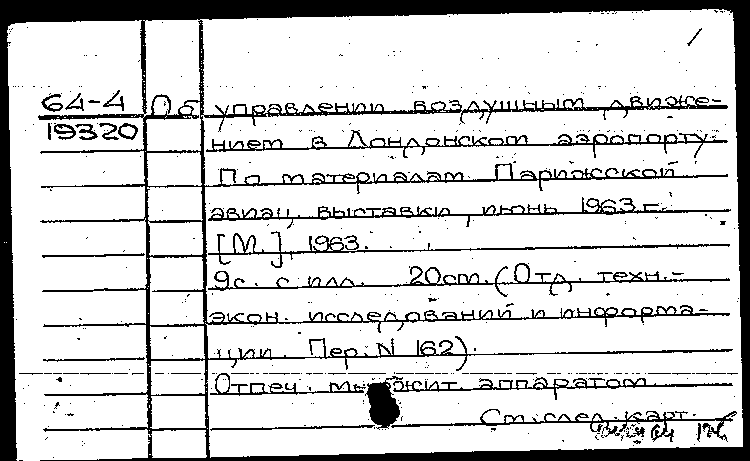 64-4 Об управлении воздушным движе-
19320 нием в Лондонском аэропорту.
По материалам Парижской
авиац. выставки, июнь 1963 г.
[М.], 1963.
9с. с илл. 20см. (Отд. техн.-
экон. исследований и информа-
ции. Пер. N 162).
Отпеч. множит. аппаратом
См. след. карт.